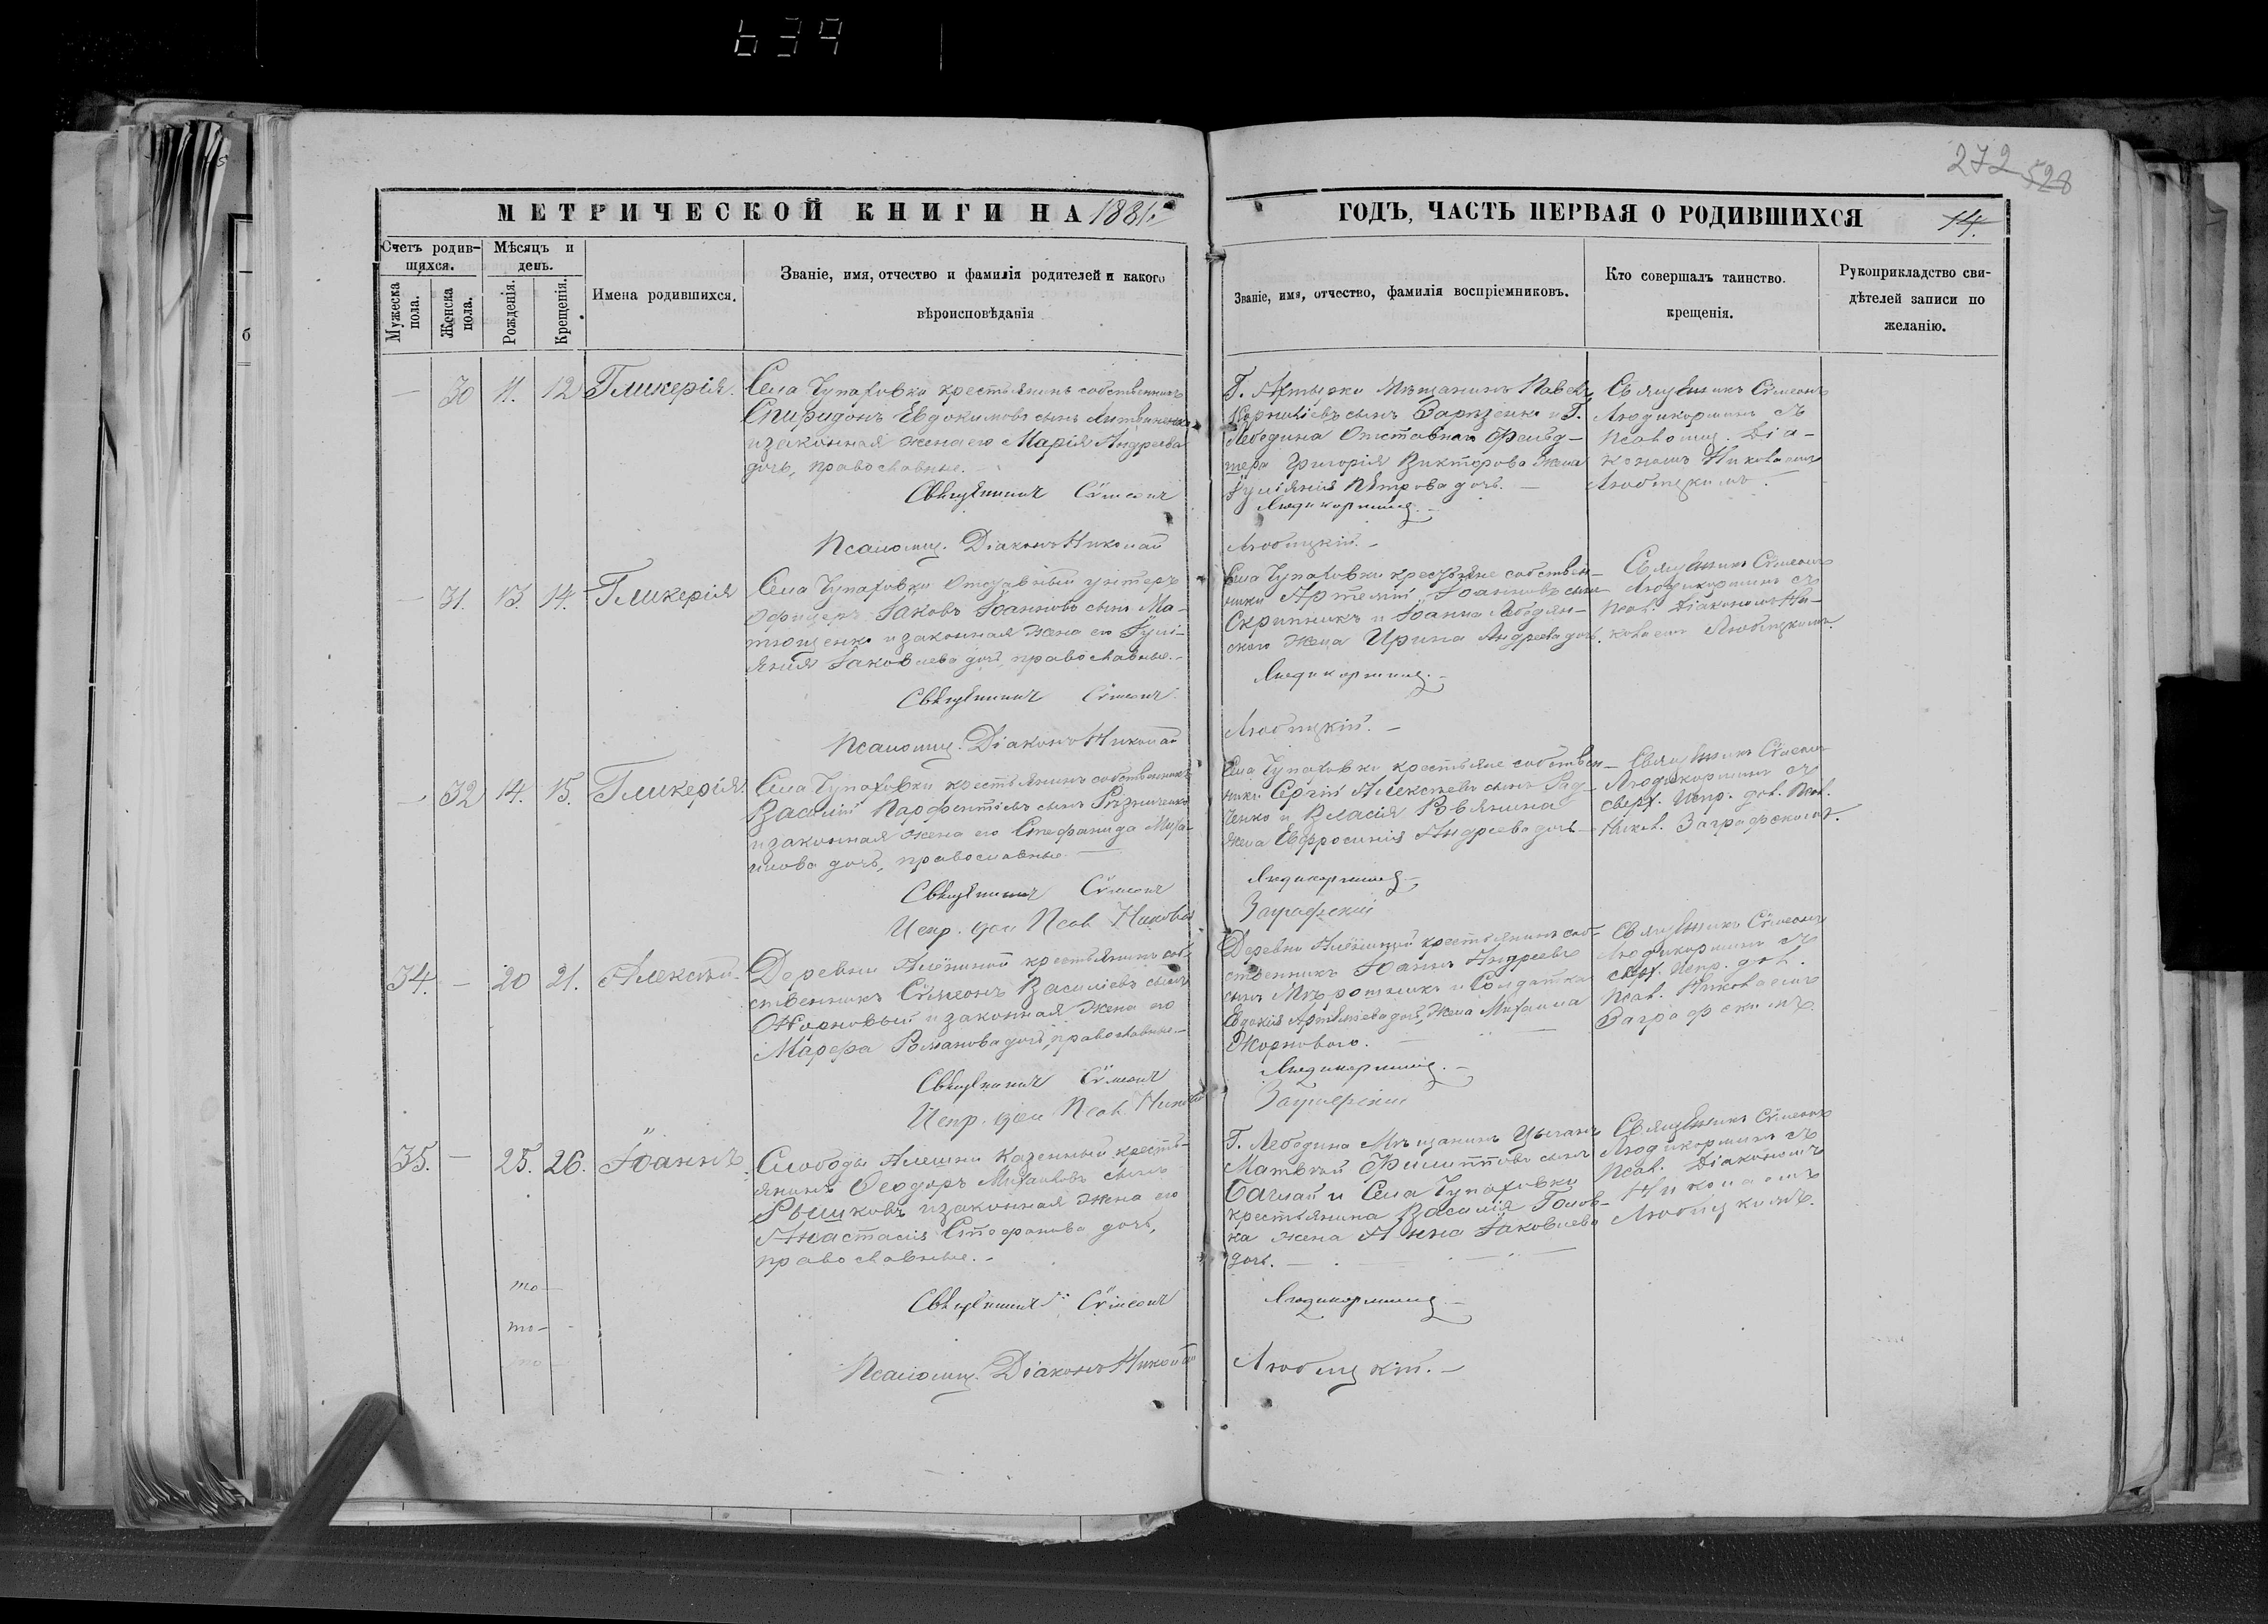 639
272 528
МЕТРИЧЕСКОЙ КНИГИ НА 1881
ГОДЪ, ЧАСТЬ ПЕРВАЯ О РОДИВШИХСЯ
14.
Счетъ родившихся.
Мужеска пола.
Женска пола.
Мѣсяцъ и день.
Рожденія.
Крещенія.
Имена родившихся.
Званіе, имя, отчество и фамилія родителей и какого
вѣроисповѣданія
Званіе, имя, отчество, фамилія воспріемниковъ.
Кто совершалъ таинство
крещенія.
Рукоприкладство сви-
дѣтелей записи по
желанію.
— 30 11. 12 Гликерія.
Села Чупаховки крестьянинъ собственникъ
Спиридонъ Евдокимовъ сынъ Литвиненко
и законная жена его Марія Андреева
дочь, православные.
Священникъ Сѵмеонъ
Псаломщ. Діаконъ Николай
Г. Ахтырки Мѣщанинъ Павелъ
Корниліевъ сынъ и Г.
Лебедина Отставнаго Фельд-
шера Григорія Викторова жена
Іуліянія Петрова дочь. —
Людикорминъ.
Любицкій. —
Священникъ Сѵмеонъ
Людикорминъ съ
Псаломщ. Діа-
кономъ Николаемъ
Любицкимъ.
— 31. 13. 14. Гликерія
Села Чупаховки Отставный унтеръ
офицеръ Іаковъ Іоанновъ сынъ Ма-
тющенко и законная жена его Іулі-
янія Іаковлева дочь, православные. —
Священникъ Сѵмеонъ
Псаломщ. Діаконъ Николай
Села Чупаховки крестьяне собствен-
ники Артемій Іоанновъ сынъ
Скрипникъ и Іоанна Лебедин-
ского жена Ирина Андреева дочь.
Людикорминъ. —
Любицкій. —
Священникъ Сѵмеонъ
Людикорминъ съ
Псал. Діакономъ Ни-
колаемъ Любицкимъ.
— 32 14. 15. Гликерія.
Села Чупаховки крестьянинъ собственникъ
Василій Парфентіевъ сынъ Рѣзниченко
и законная жена его Стефанида Миха-
илова дочь, православные —
Священникъ Сѵмеонъ
Испр. дол. Псал. Николай
Села Чупаховки крестьяне собствен-
ники Сергій Алексѣевъ сынъ Рад-
ченко и Власія Ревякина
жена Евфросинія Андреева дочь —
Людикорминъ —
Заграфскій
Священникъ Сѵмеонъ
Людикорминъ съ
сверх. Испр. дол. Псал.
Никол. Заграфскимъ.
34. — 20 21. Алексѣй
Деревни Алёшиной крестьянинъ соб-
ственникъ Сѵмеонъ Василіевъ сынъ
Жорновый и законная жена его
Марфа Романова дочь, православные. —
Священникъ Сѵмеонъ
Испр. дол. Псал. Николай
Деревни Алёшиной крестьянинъ соб-
ственникъ Іоаннъ Андреевъ
сынъ Мѣрошникъ и Солдатка
Евдокія Артеміева дочь, жена Михаила
Жорнового. —
Людикорминъ. —
Заграфскій
Священникъ Сѵмеонъ
Людикорминъ съ
сверх. Испр. дол.
Псал. Николаемъ
Заграфскимъ.
35. — 25. 26. Іоаннъ
Слободы Алешни Казенный кресть-
янинъ Ѳеодоръ Михаиловъ сынъ
Рышковъ и законная жена его
Анастасія Стефанова дочь,
православные. —
Священникъ Сѵмеонъ
Псаломщ. Діаконъ Николай
Г. Лебедина Мѣщанинъ Цыганъ
Матвѣй Филипповъ сынъ
Баглай и Села Чупаховки
крестьянина Василія Голов-
ка жена Анна Іаковлева
дочь. —
Людикорминъ —
Любицкій. —
Священникъ Сѵмеонъ
Людикорминъ съ
Псал. Діакономъ
Николаемъ
Любицкимъ.
то —
то —
то